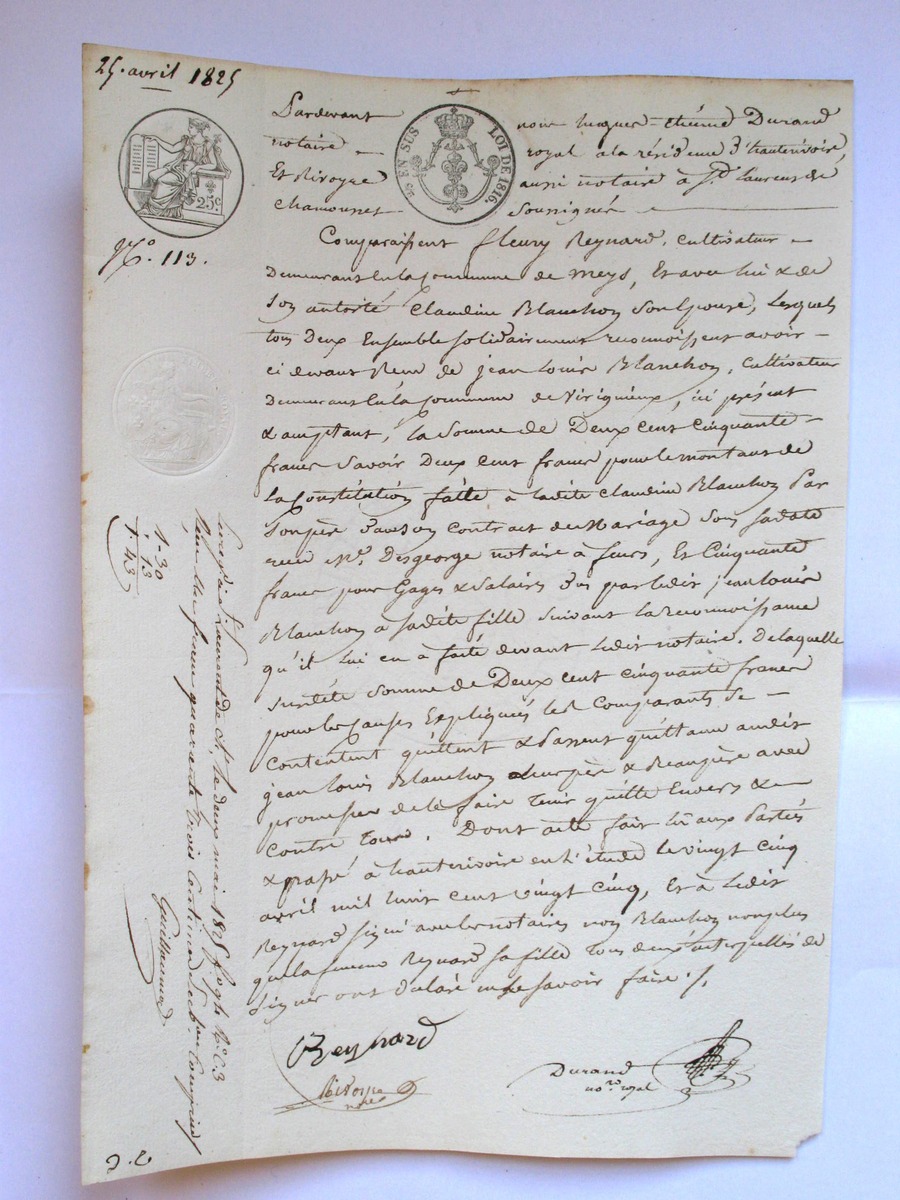 25. avril 1825
Pardevant nous hugues étienne Durand
notaire royal a la résidence d'hauterivoire,
Et Rivoyre aussi notaire à St. Laurens de
Chamousset Soussignés
25 EN SUS LOI DE 1816.
25c.
No. 113.
Comparaissent fleury Reynard, Cultivateur
Demeurant en la Commune de Meys, Et avec lui & de
Son autorité Claudine Blanchon Son Epouse, Lesquels
tous deux Ensemble solidairement reconnoissent avoir
ci devant Reçu de jean Louis Blanchon, Cultivateur
Demeurant en la Commune de Virignieux, ici présent
& acceptant, la Somme de Deux cent Cinquante
francs Savoir Deux cent francs pour le montant de
La Constitution faitte à ladite Claudine Blanchon Par
Son père dans son Contrat de Mariage Sous sa date
reçu Me. Desgeorge notaire à feurs, Et Cinquante
francs pour Gages & Salaires dus par ledit jean Louis
Blanchon à sadite fille suivant la Reconnoissance
qu'il lui en à faite devant ledit notaire. De laquelle
susdite Somme de Deux cent cinquante francs
pour les Causes Expliquées les Comparants Se
Contentent quittent & Passent quittance audit
jean Louis Blanchon Leur père & Beaupère avec
promesse de le faire tenir quitte Envers &
Contre Tous. Dont acte fait lu aux Parties
& passé à hauterivoire en l'étude le vingt cinq
avril mil huit cent vingt cinq, Et à Ledit
Reynard signé avec les notaires non Blanchon non plus
que la femme Reynard sa fille tous deux interpellés de
Signer ont déclaré ne le savoir faire ./.
Reynard
Rivoyre
nore
Durand
nore. royal
1-30
13
1-43
St. Laurent de Ch. le deux mai 1825 fo 98 Ro C 3
Reçu un franc quarante trois centimes Dixe. compris
Guillermard